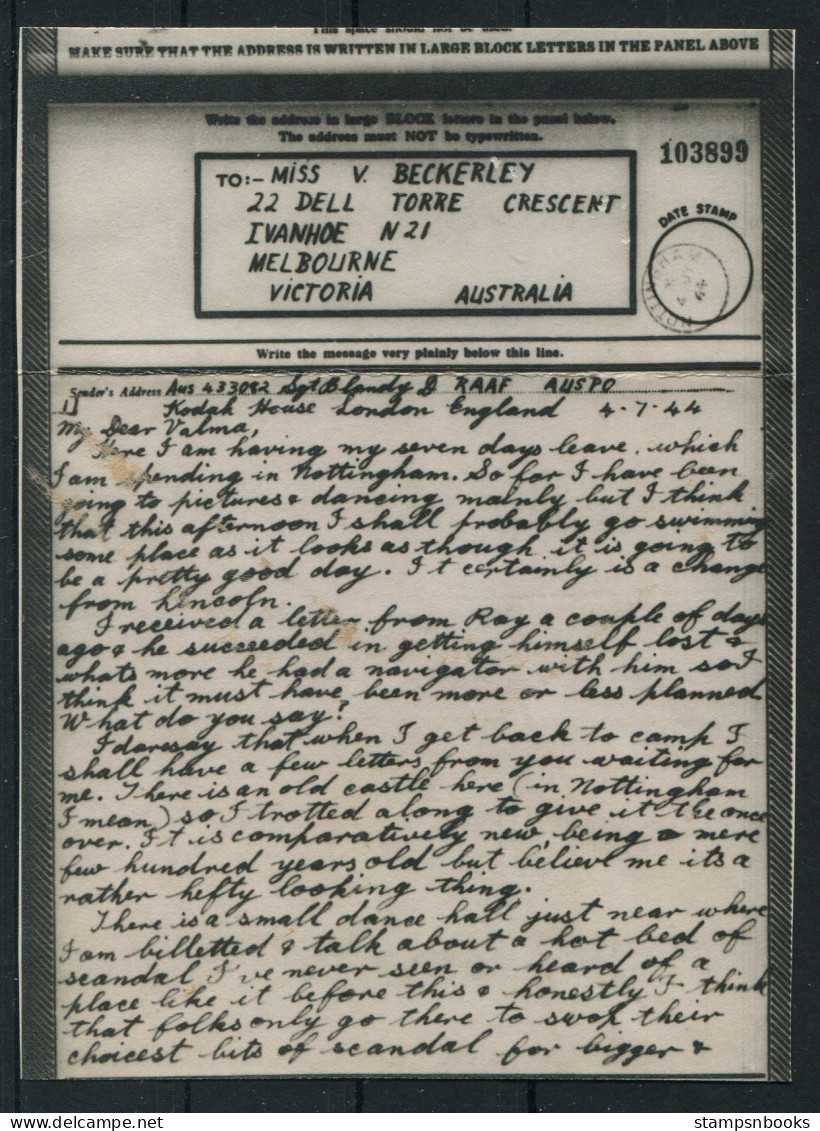 This space should not be used.
MAKE SURE THAT THE ADDRESS IS WRITTEN IN LARGE BLOCK LETTERS IN THE PANEL ABOVE
Write the address in large BLOCK letters in the panel below.
The address must NOT be typewritten.
103899
TO:- MISS V. BECKERLEY
22 DELL TORRE CRESCENT
IVANHOE N21
MELBOURNE
VICTORIA AUSTRALIA
DATE STAMP
NOTTINGHAM
44
Write the message very plainly below this line.
Sender's Address Aus 433082 Sgt Blandy D RAAF AUSPO
1] Kodak House London England 4-7-44
My Dear Valma,
Here I am having my seven days leave, which
I am spending in Nottingham. So far I have been
going to pictures & dancing mainly but I think
that this afternoon I shall probably go swimming
some place as it looks as though it is going to
be a pretty good day. It certainly is a change
from Lincoln.
I received a letter from Ray a couple of days
ago & he succeeded in getting himself lost &
whats more he had a navigator with him so I
think it must have been more or less planned
What do you say?
I daresay that when I get back to camp I
shall have a few letters from you waiting for
me. There is an old castle here (in Nottingham
I mean) so I trotted along to give it the once
over. It is comparatively new, being a mere
few hundred years old but believe me its a
rather hefty looking thing.
There is a small dance hall just near where
I am billetted & talk about a hot bed of
scandal I've never seen or heard of a
place like it before this & honestly I think
that folks only go there to swop their
choicest bits of scandal for bigger &
stampsnbooks